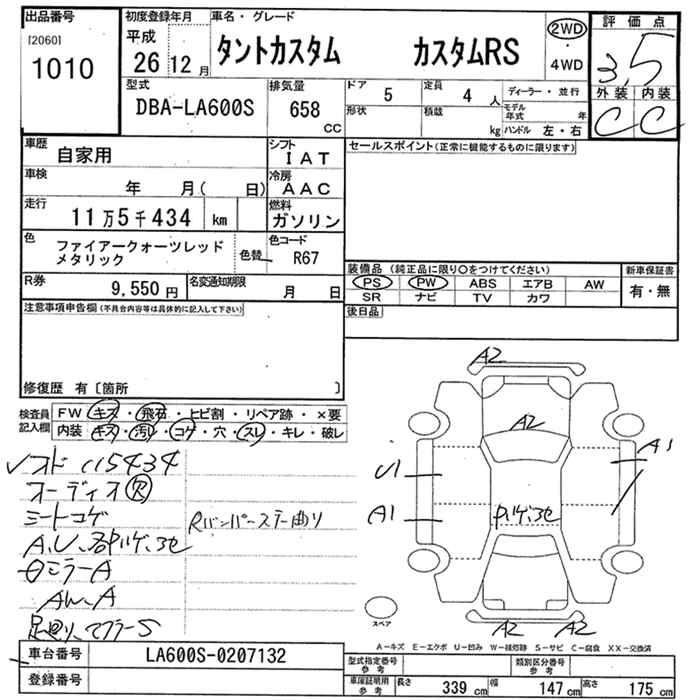 出品番号
[2060]
1010
初度登録年月
平成
26 12 月
車名・グレード
タントカスタム カスタムRS
2WD
・
4WD
評価点
3,5
外装 内装
C C
型式
DBA-LA600S
排気量
658
CC
ドア
5
定員
4 人
形状
積載
kg
ディーラー・並行
モデル年式 年
ハンドル 左・右
車歴
自家用
シフト
IAT
車検
年 月( 日)
冷房
AAC
走行
11万5千434 km
燃料
ガソリン
色
ファイアークォーツレッド
メタリック
色替
色コード
R67
R券
9,550 円
名変通知期限
月 日
セールスポイント(正常に機能するものに限ります)
装備品 (純正品に限り○をつけてください)
新車保証書
PS PW ABS エアB AW
SR ナビ TV カワ
有・無
後日品
注意事項申告欄(不具合内容等は具体的に記入して下さい)
修復歴 有〔箇所 〕
検査員
記入欄
FW キズ・飛石・ヒビ割・リペア跡・×要
内装 キズ・汚レ・コゲ・穴・スレ・キレ・破レ
115434
オーディオ欠
シートコゲ
Rバンパーステー曲り
ミラーA
AW.A
マフラーS
A2
A2
A1
U1
A1
A2 A2
スペア
A-キズ E-エクボ U-凹み W-補修跡 S-サビ C-腐食 XX-交換済
車台番号
LA600S-0207132
登録番号
型式指定番号
参考
類別区分番号
参考
車庫証明用
参考
長さ 339 cm 幅 147 cm 高さ 175 cm